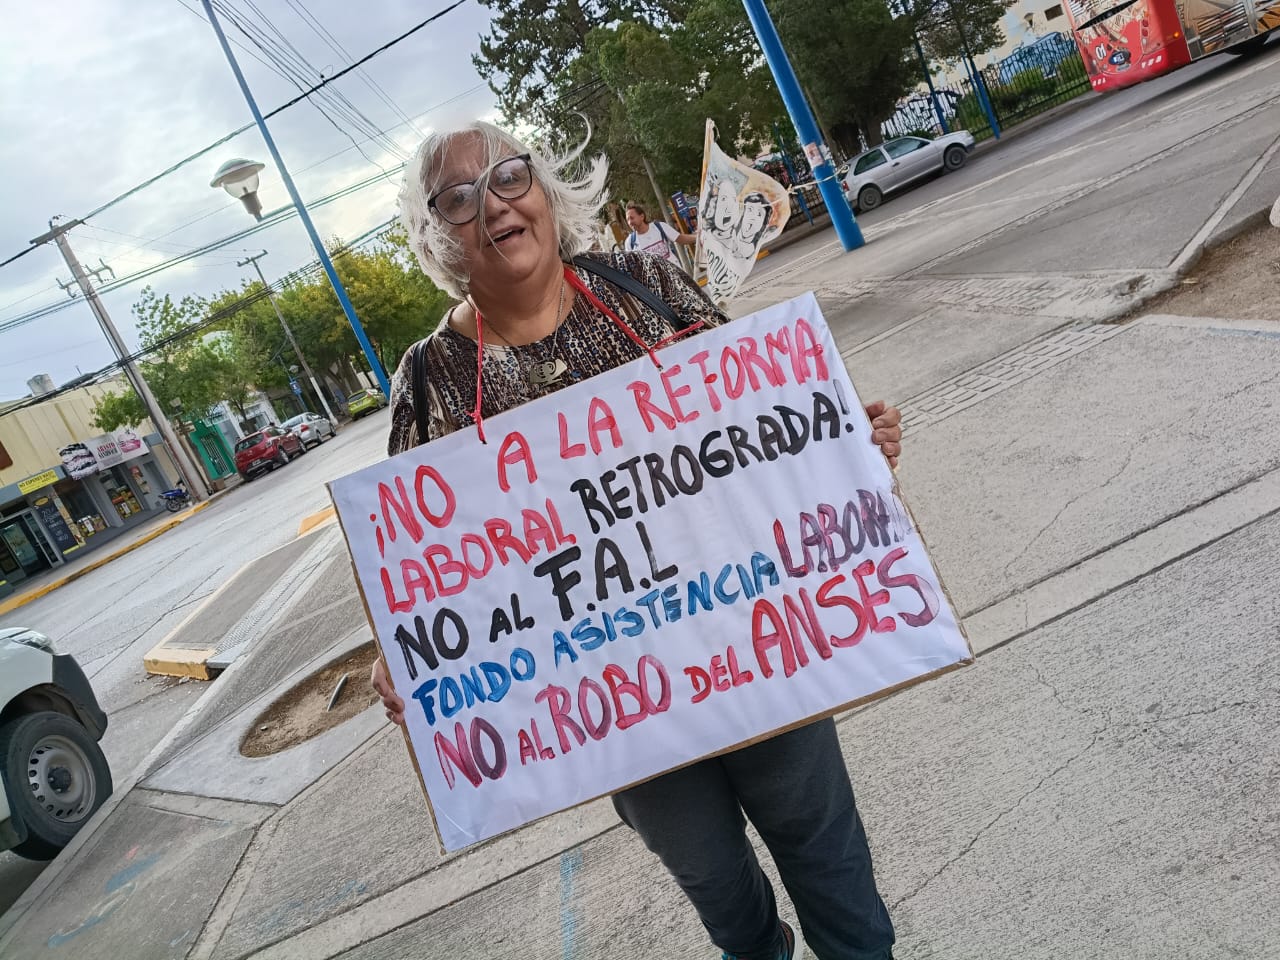 ¡NO A LA REFORMA
LABORAL RETROGRADA!
NO AL F.A.L
FONDO ASISTENCIA LABORAL
NO AL ROBO DEL ANSES
E